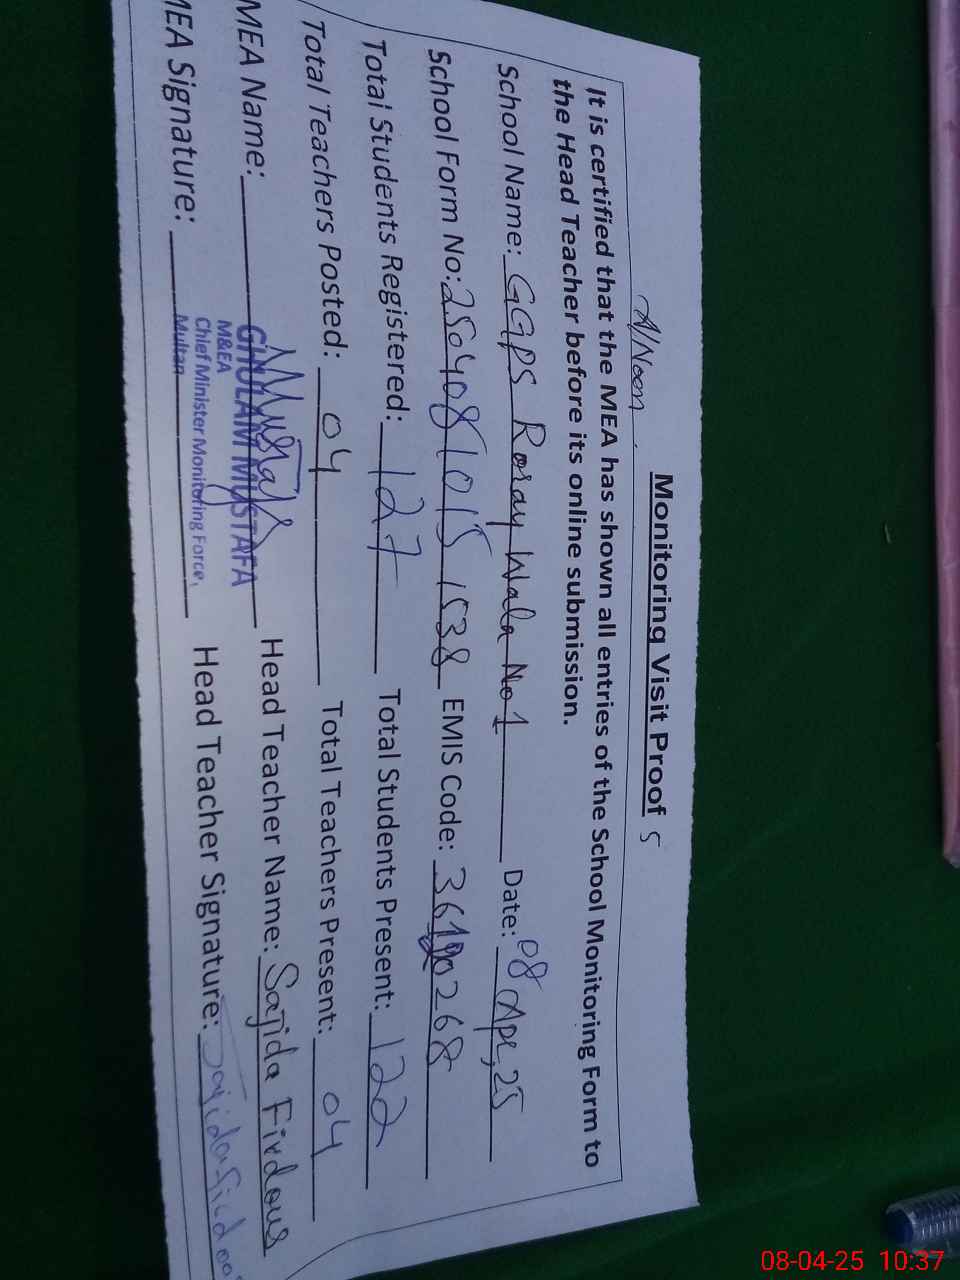 A/Noon.
Monitoring Visit Proof 5
It is certified that the MEA has shown all entries of the School Monitoring Form to
the Head Teacher before its online submission.
School Name: GGPS Roray Wala No 1 Date: 08 Apr, 25
School Form No: 2504081015 1538 EMIS Code:
Total Students Registered: 127 Total Students Present: 122
Total Teachers Posted: 04 Total Teachers Present: 04
MEA Name: GHULAM MUSTAFA Head Teacher Name: Sajida Firdous
M&EA
Chief Minister Monitoring Force,
Multan
MEA Signature: Head Teacher Signature: Sajida Firdous
08-04-25 10:37